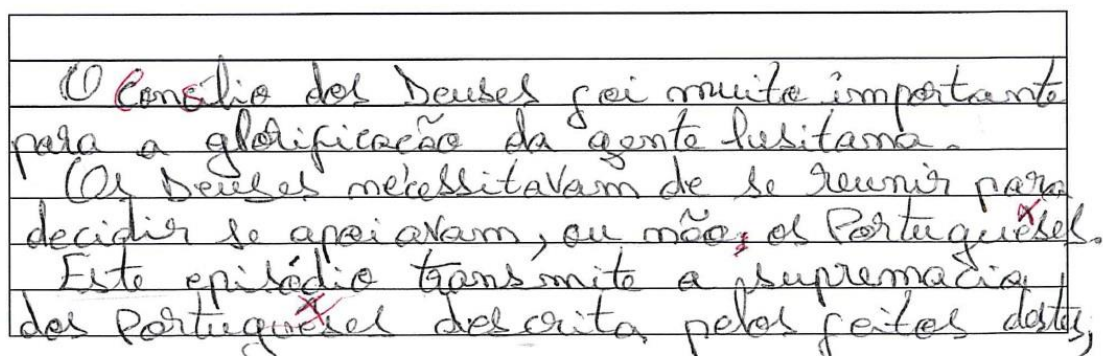 O Consílio dos Deuses foi muito importante
para a glorificação da gente lusitana.
Os Deuses necessitavam de se reunir para
decidir se apoiavam, ou não, os Portuguêses.
Este episódio transmite a supremacia
dos Portuguêses descrita pelos feitos destes,